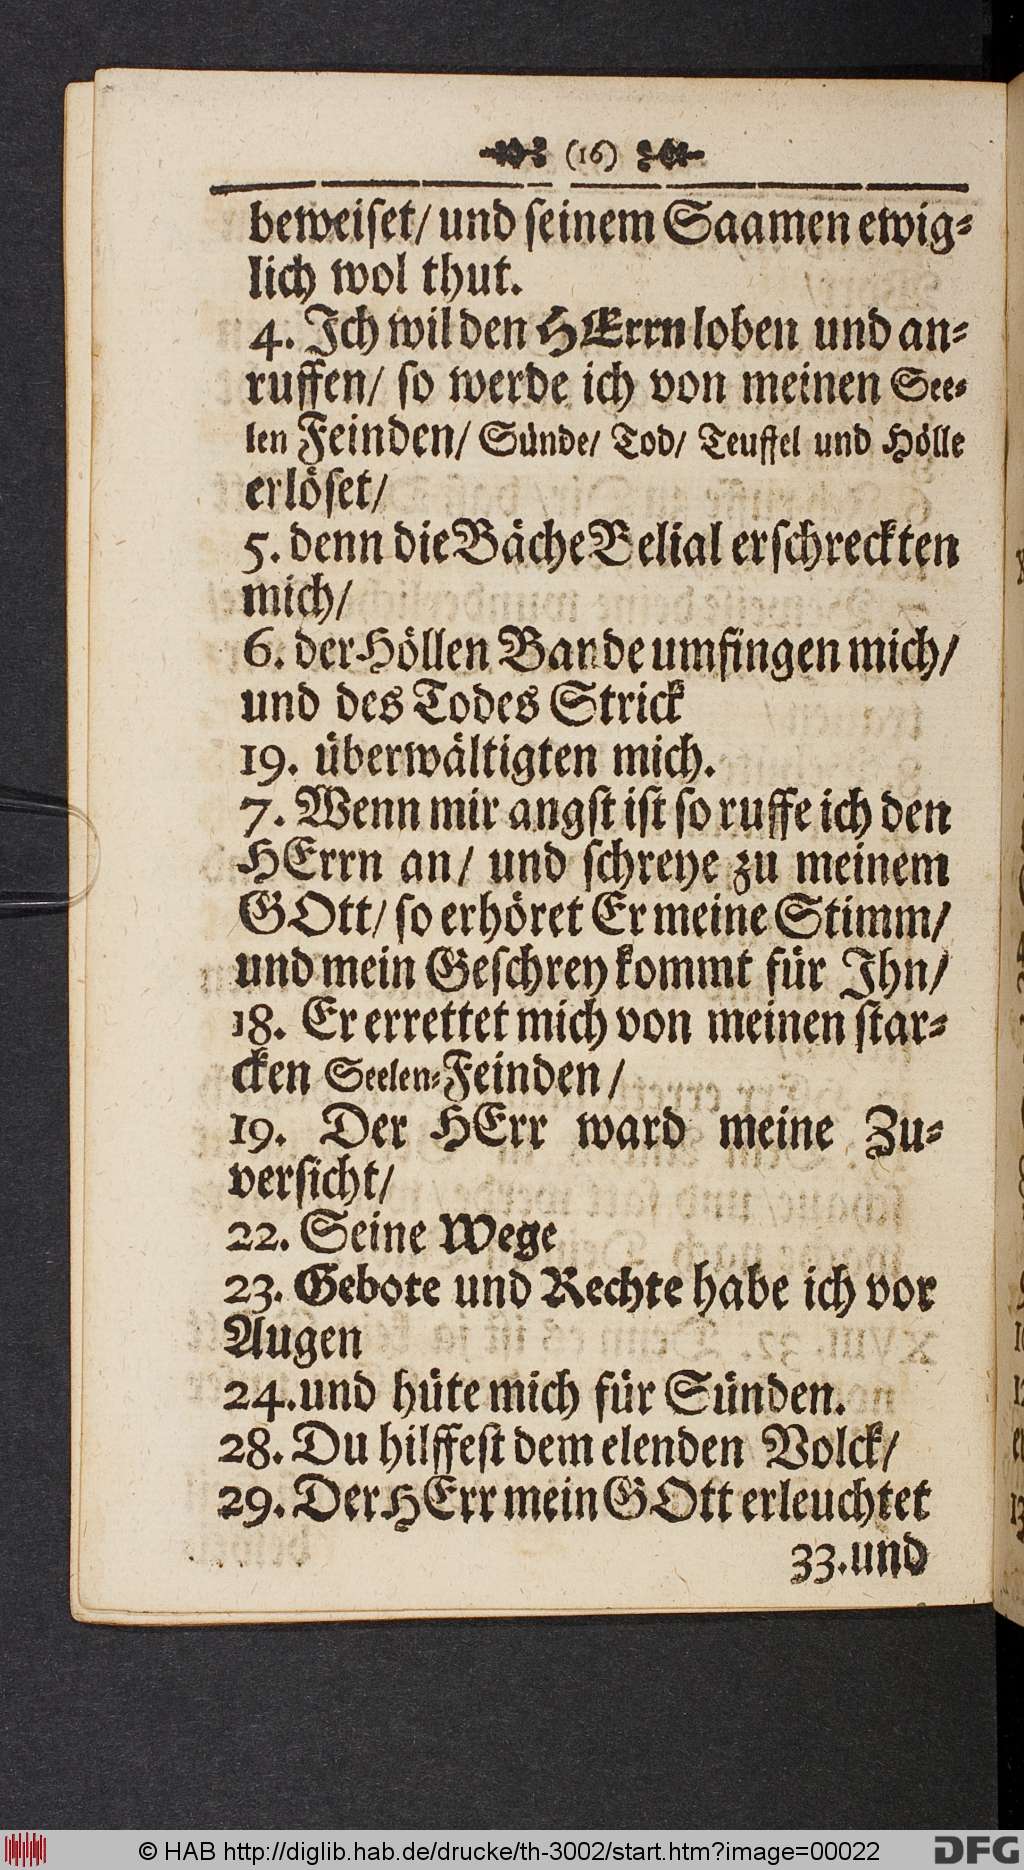 (16)
beweiset/ und seinem Saamen ewig-
lich wol thut.
4. Ich wil den HErrn loben und an-
ruffen/ so werde ich von meinen See-
len Feinden/ Sünde/ Tod/ Teuffel und Hölle
erlöset/
5. denn die Bäche Belial erschreckten
mich/
6. der Höllen Bande umfingen mich/
und des Todes Strick
19. überwältigten mich.
7. Wenn mir angst ist so ruffe ich den
HErrn an/ und schreye zu meinem
GOtt/ so erhöret Er meine Stimm/
und mein Geschrey kommt für Ihn/
18. Er errettet mich von meinen star-
cken Seelen-Feinden/
19. Der HErr ward meine Zu-
versicht/
22. Seine Wege
23. Gebote und Rechte habe ich vor
Augen
24. und hüte mich für Sünden.
28. Du hilffest dem elenden Volck/
29. Der HErr mein GOtt erleuchtet
33. und
© HAB http://diglib.hab.de/drucke/th-3002/start.htm?image=00022
DFG